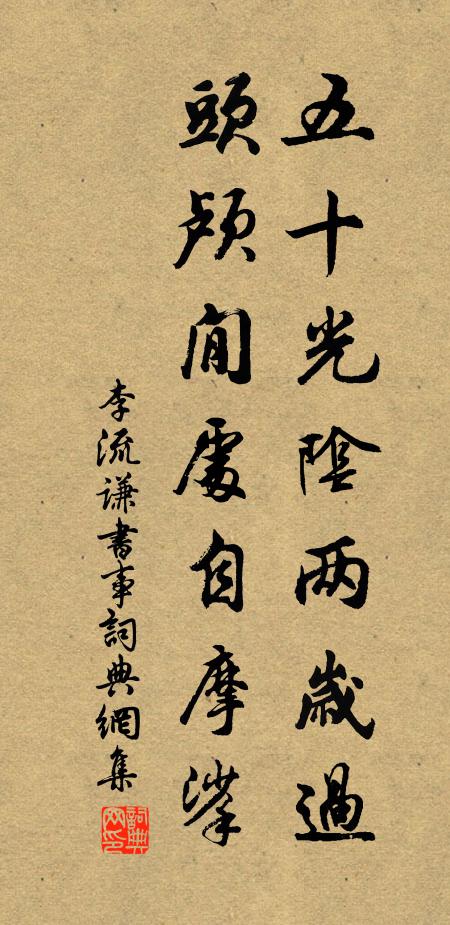 五十光陰两歲過
頭顱閒處自摩挲
李流谦書事詞典網集
詞典网印